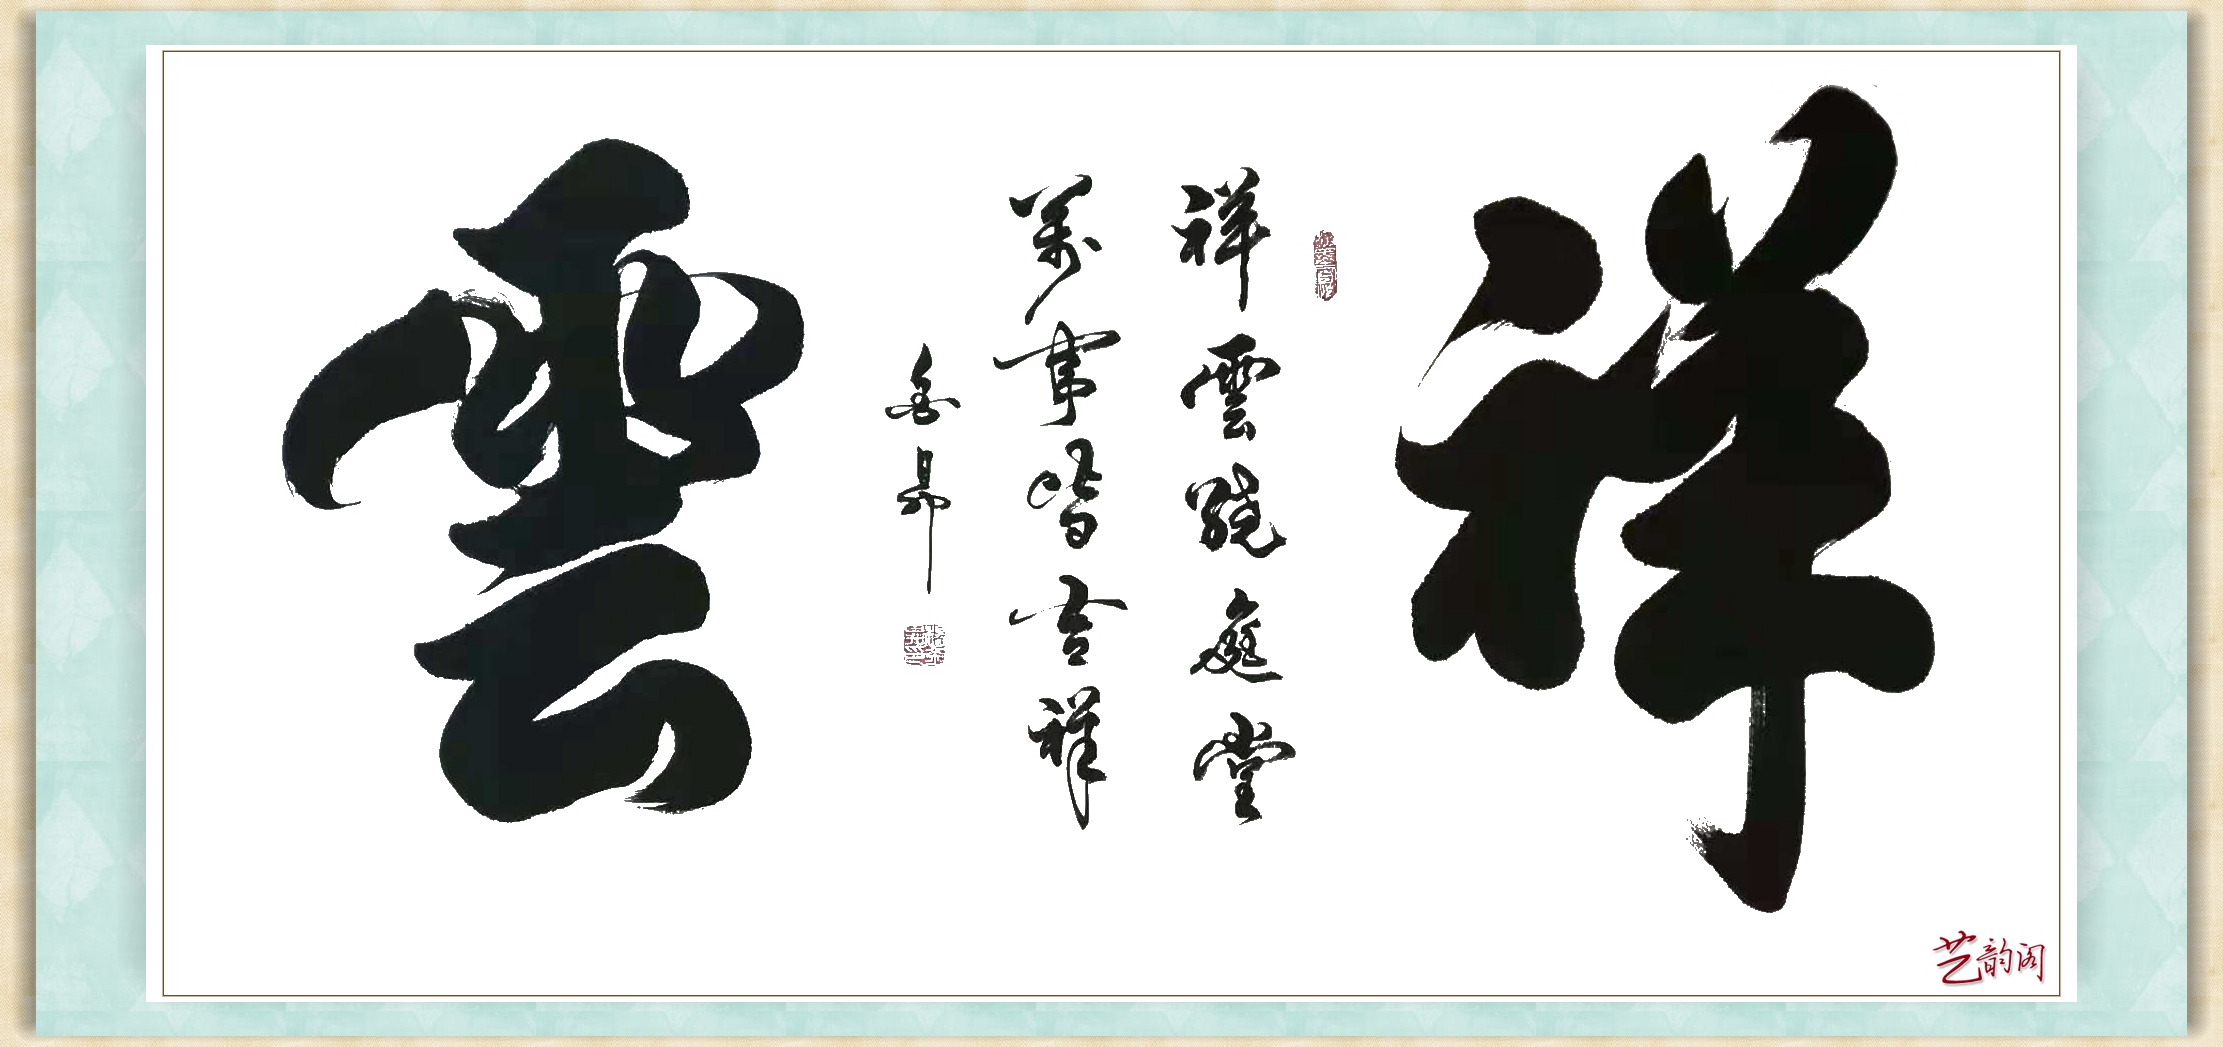 祥
祥雲繞庭堂
萬事皆吉祥
雲
艺韵阁